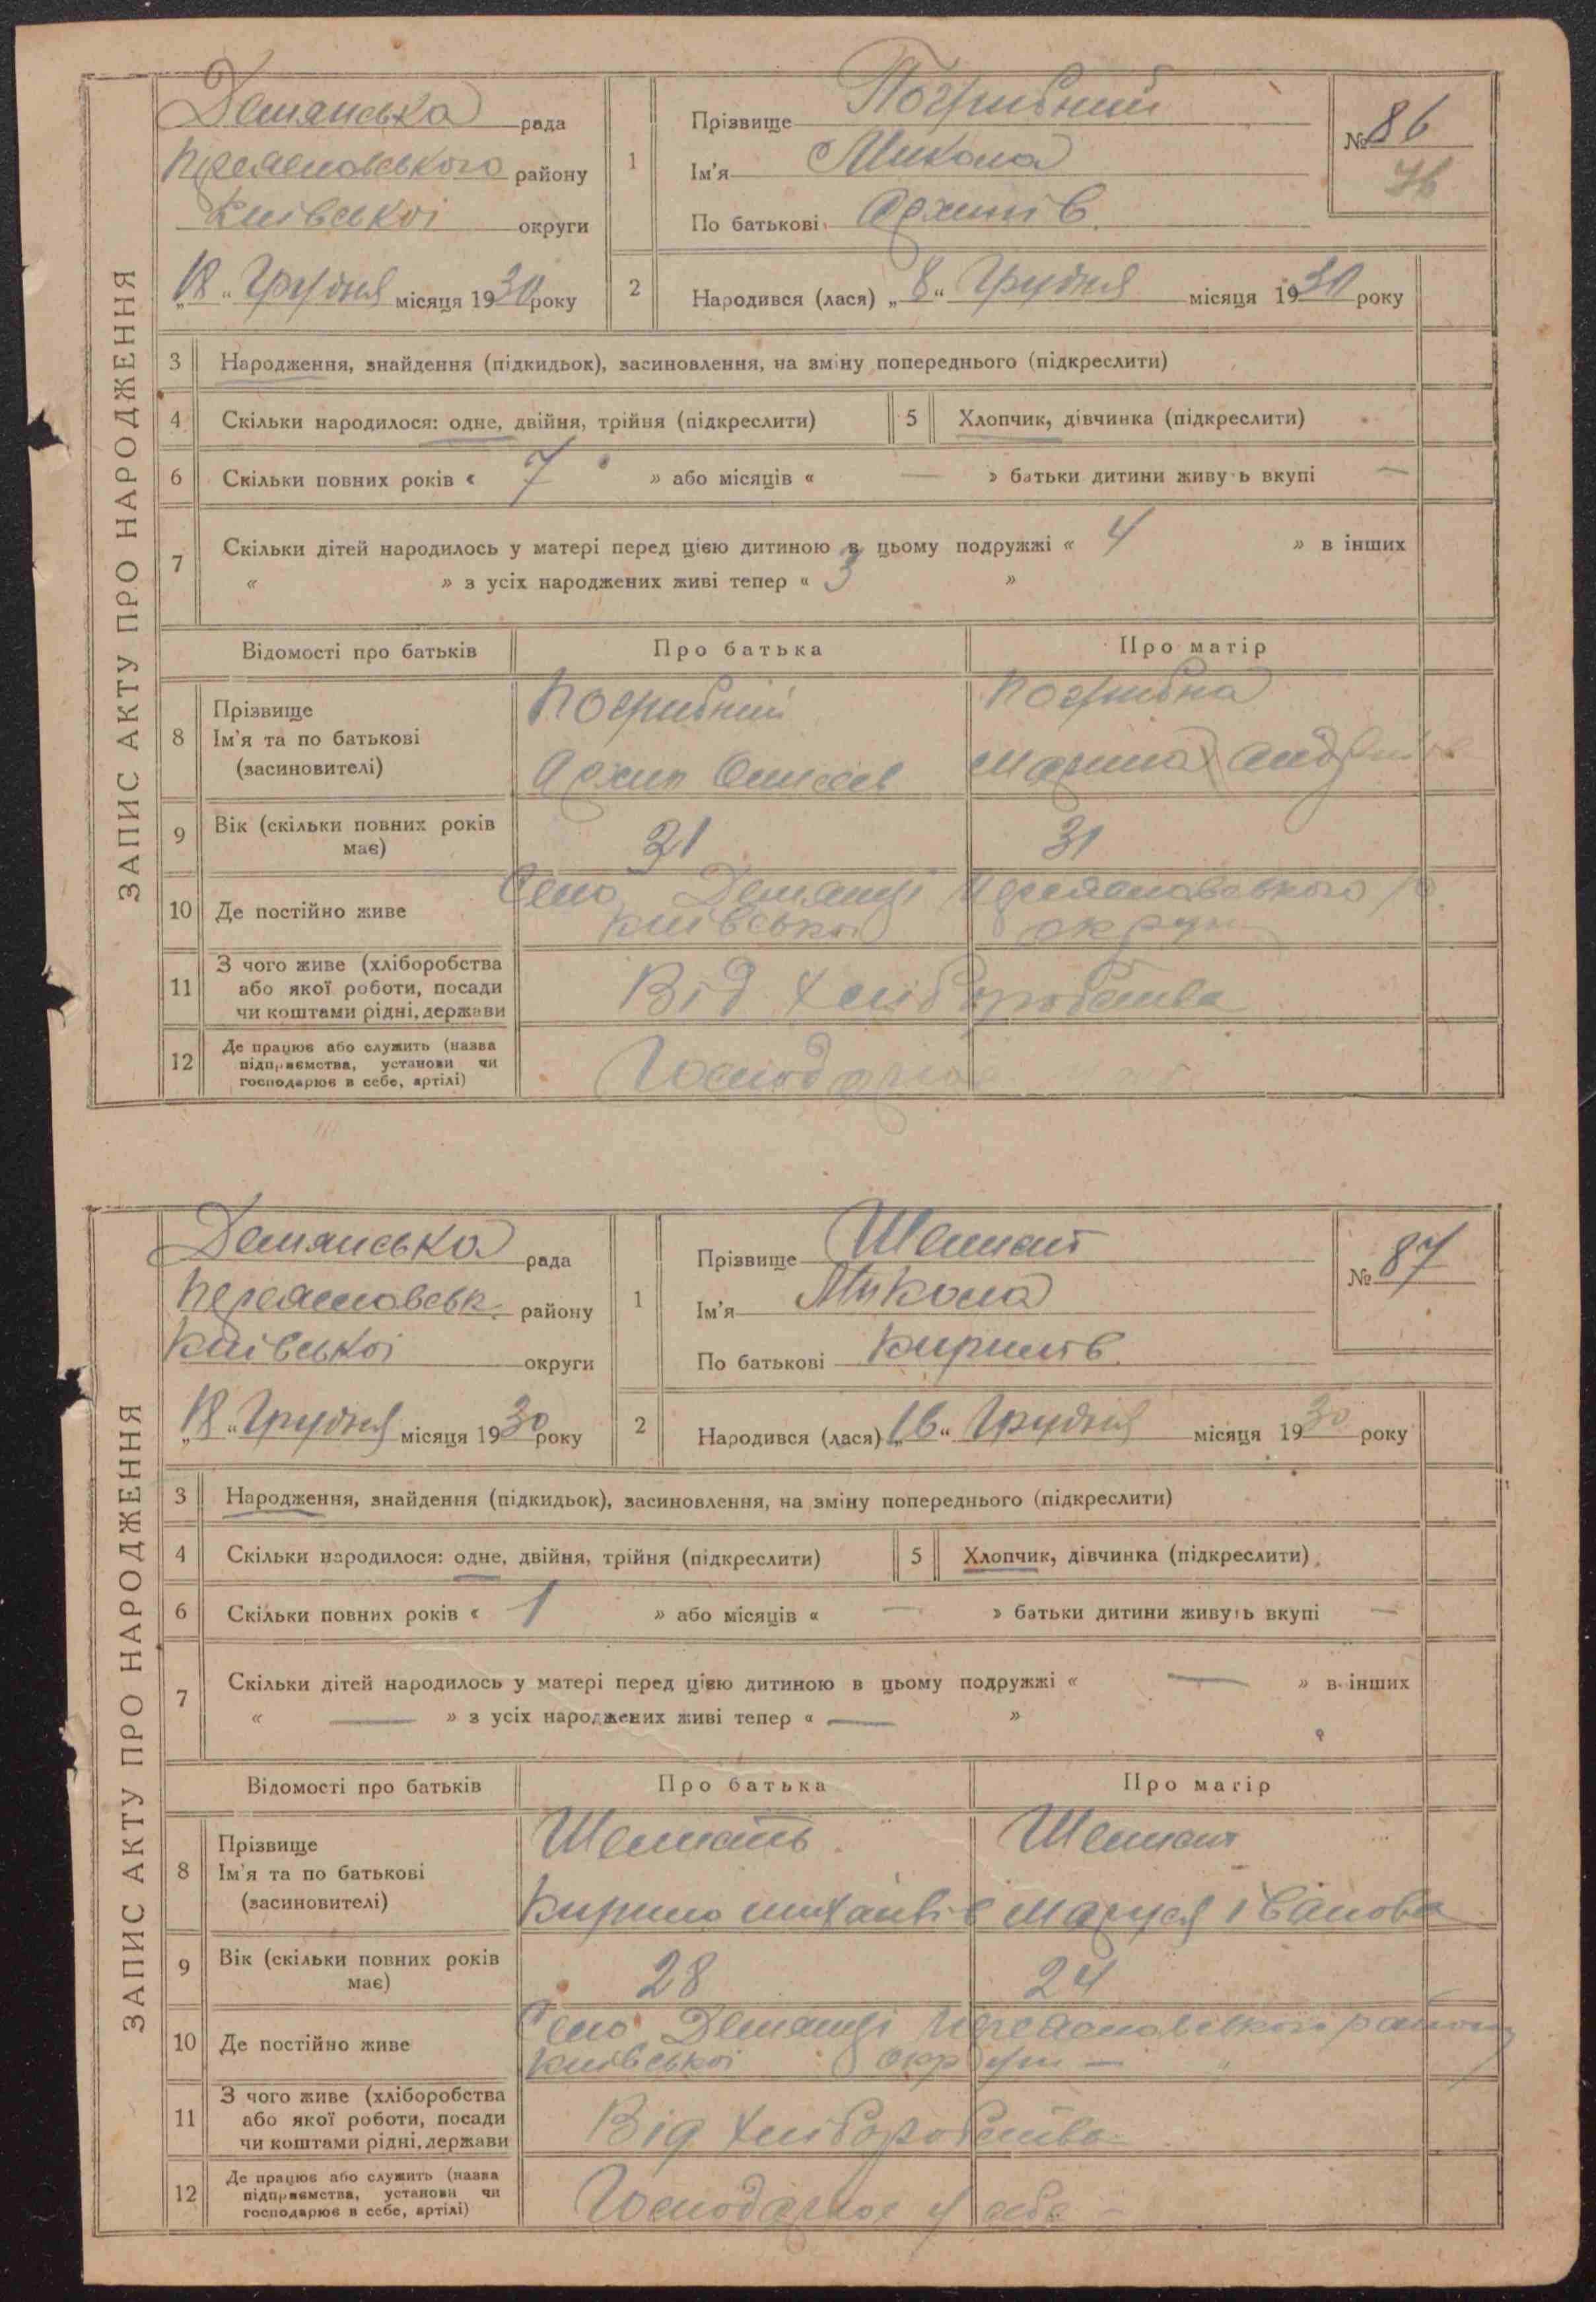 ЗАПИС АКТУ ПРО НАРОДЖЕННЯ
Демянська рада
Переяславського району
Київської округи
„18“ Грудня місяця 1930 року
1
Прізвище Погрибний
Ім'я Микола
По батькові Архипів
№ 86
2
Народився (лася) „8“ Грудня місяця 1930 року
3 Народження, знайдення (підкидьок), засиновлення, на зміну попереднього (підкреслити)
4 Скільки народилося: одне, двійня, трійня (підкреслити) 5 Хлопчик, дівчинка (підкреслити)
6 Скільки повних років « 7 » або місяців « — » батьки дитини живуть вкупі —
7 Скільки дітей народилось у матері перед цією дитиною в цьому подружжі « 4 » в інших
« » з усіх народжених живі тепер « 3 »
Відомості про батьків Про батька Про матір
8 Прізвище
Ім'я та по батькові
(засиновителі)
Погрибний Погрибна
Архип Марина
9 Вік (скільки повних років
має)
31 31
10 Де постійно живе
Село Демянці Переяславського р.
Київської округи
11 З чого живе (хліборобства
або якої роботи, посади
чи коштами рідні, держави
Від хліборобства
12 Де працює або служить (назва
підприємства, установи чи
господарює в себе, артілі)
Господарює
ЗАПИС АКТУ ПРО НАРОДЖЕННЯ
Демянська рада
Переяславськ. району
Київської округи
„18“ Грудня місяця 1930 року
1
Прізвище Шемшт
Ім'я Микола
По батькові Кирилів
№ 87
2
Народився (лася) „16“ Грудня місяця 1930 року
3 Народження, знайдення (підкидьок), засиновлення, на зміну попереднього (підкреслити)
4 Скільки народилося: одне, двійня, трійня (підкреслити) 5 Хлопчик, дівчинка (підкреслити)
6 Скільки повних років « 1 » або місяців « — » батьки дитини живуть вкупі —
7 Скільки дітей народилось у матері перед цією дитиною в цьому подружжі « — » в інших
« — » з усіх народжених живі тепер « — »
Відомості про батьків Про батька Про матір
8 Прізвище
Ім'я та по батькові
(засиновителі)
Кирило Михайлів Маруся Іванова
9 Вік (скільки повних років
має)
28 24
10 Де постійно живе
Село Демянці Переяславського району
Київської округи —
11 З чого живе (хліборобства
або якої роботи, посади
чи коштами рідні, держави
Від хліборобства
12 Де працює або служить (назва
підприємства, установи чи
господарює в себе, артілі)
Господарює у себе —